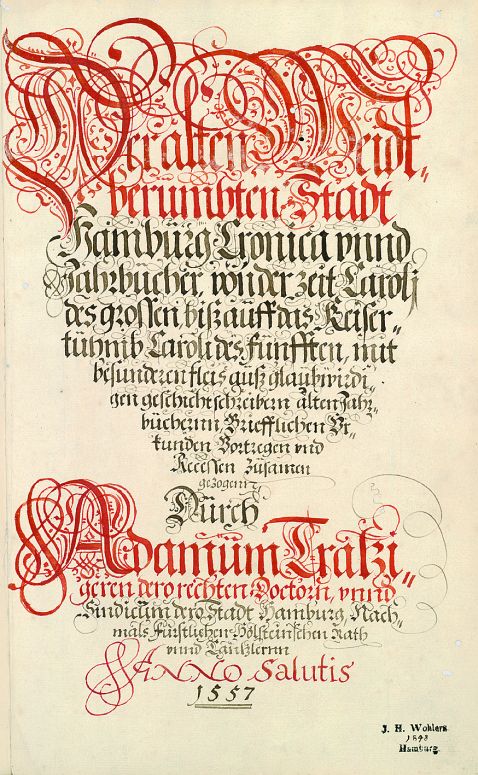 Der alten Weidt„
berumbten Stadt
Hamburg Cronica vnnd
Jahrbücher, von der zeit Caroli
des grossen, biß auff das Keiser„
tuhmb Caroli des Fünfften, mit
besunderen fleis auß glaubwirdi„
gen geschichtschreibern alten Jahr„
büchernn, Briefflichen Vr„
kunden Vortregen vnd
Recessen zusamen
gezogenn
Dürch
Adamüm Tratzi„
geren dero rechten Doctorn, vnnd
Sindicum dero Stadt Hamburg, Nach„
mals Furstlichen Holsteinschen Rath
vnnd Cantzlernn
ANNO Salutis
1557
J. H. Wohlers
1843
Hamburg.